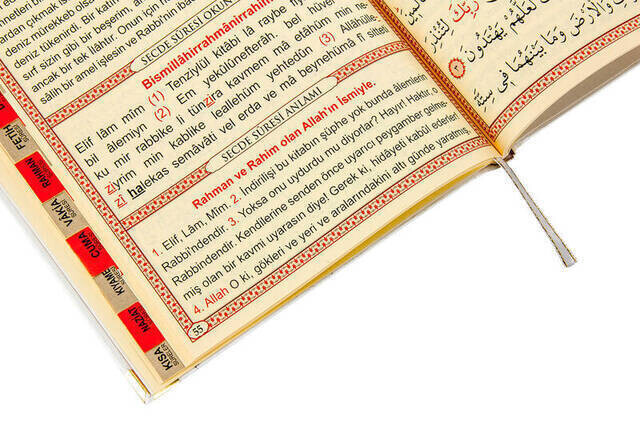 deniz mürekkep olsa
deniz tükenirdi. Bir katı
sırf sizin gibi bir beşerim, an
ancak bir tek ilâhtır. Onun için h
sâlih bir amel işlesin ve Rabb'ine ibâd
SECDE SÛRESİ OKUN
Bismillâhirrahmânirrahîm
Elif lâm mîm (1) Tenzîylül kitâbi lâ raybe
bil âlemiyn (2) Em yekûlûnefterâh. bel hü
ku mir rabbike li tünzira kavmem mâ etâhüm min ne
ziyrim min kablike leallehüm yehtedûn (3) Allâhülle
zî halekas semâvâti vel erda ve mâ beynehümâ fî sitteti
SECDE SÛRESİ ANLAMI
Rahman ve Rahim olan Allah'ın İsmiyle.
1. Elif, Lâm, Mîm. 2. İndirilişi bu kitabın şüphe yok bunda âlemlerin
Rabbi'ndendir. 3. Yoksa onu uydurdu mu diyorlar? Hayır! Haktır o
Rabbindendir. Kendilerine senden önce uyarıcı peygamber gelme-
miş olan bir kavmi uyarasın diye! Gerek ki, hidâyeti kabûl ederler
4. Allah O ki, gökleri ve yeri ve aralarındakini altı günde yaratmış,
55
FETİH
SÛRESİ
RAHMAN
SÛRESİ
VAKIA
SÛRESİ
CUMA
SÛRESİ
KIYAME
SÛRESİ
NAZİAT
SÛRESİ
KISA
SÛRELER
رَبِّكَ لِتُنْذِرَ
لَعَلَّهُمْ يَهْتَدُونَ
وَالْاَرْضَ وَمَا بَيْنَهُمَا فِي سِتَّةِ